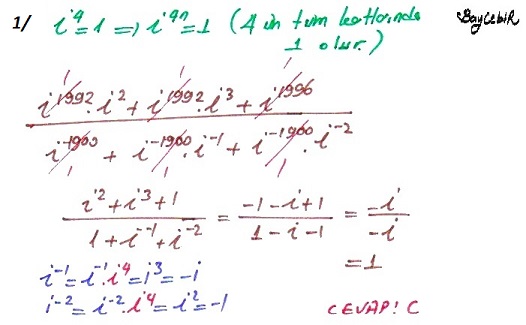 1/ i⁴=1 => i⁴ⁿ=1 (4 ün tüm katlarında BayCebiR
1 olur.)
(i¹⁹⁹².i² + i¹⁹⁹².i³ + i¹⁹⁹⁶) / (i⁻¹⁹⁰⁰ + i⁻¹⁹⁰⁰.i⁻¹ + i⁻¹⁹⁰⁰.i⁻²)
(i²+i³+1) / (1+i⁻¹+i⁻²) = (-1-i+1) / (1-i-1) = -i / -i
i⁻¹=i⁻¹.i⁴=i³=-i =1
i⁻²=i⁻².i⁴=i²=-1 CEVAP: C